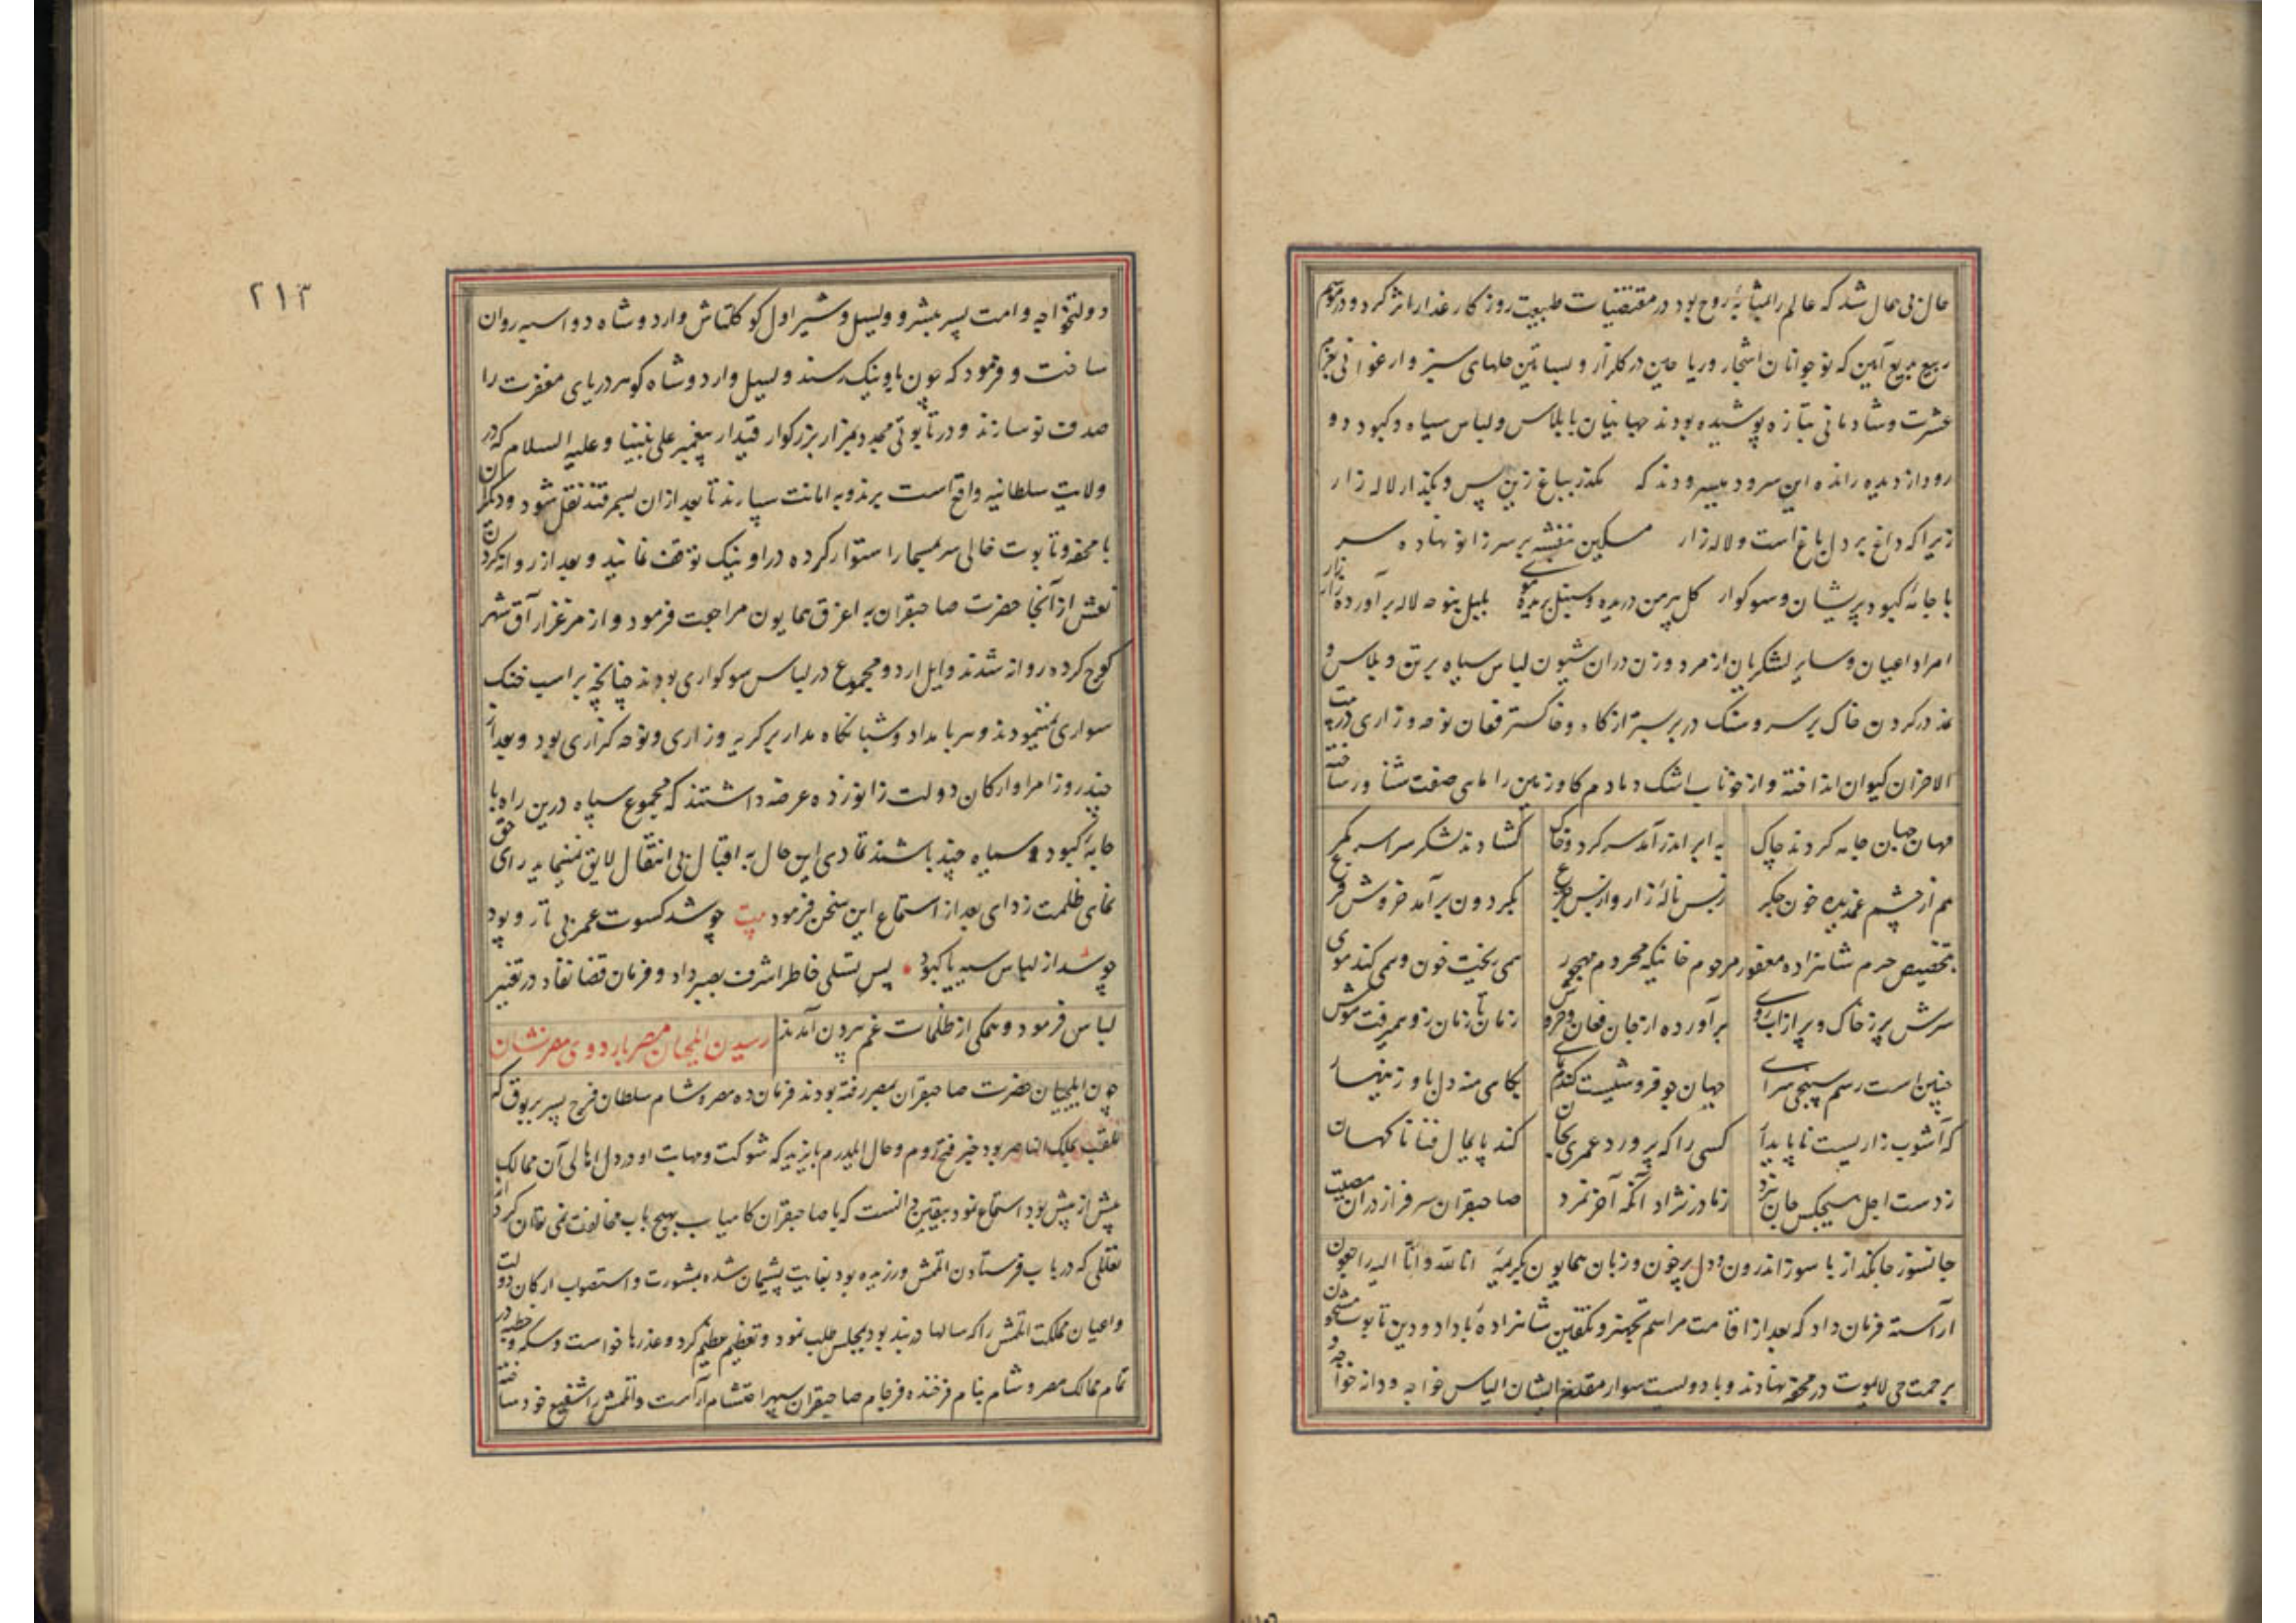 حال بی همال شد که عالم را بمثابهٔ روح بود در مقتضیات طبیعت روزگار غدار اثر کرد و در موسم
ربیع بدیع آیین که نوجوانان اشجار و ریاحین در گلزار و بساتین حلهای سبز و ارغوانی بعزم
عشرت و شادمانی بتازه پوشیده بودند جهانیان با پلاس و لباس سیاه و کبود دو
رود از دیده رانده این سرود میسرودند که بگذر بباغ زین پس و بگذار لاله زار
زیرا که داغ بر دل باغ است و لاله زار مسکین بنفشه بر سر زانو نهاده سر
با جامهٔ کبود پریشان و سوکوار گل پیرهن دریده و سنبل بریده موی بلبل بنوحه لاله برآورده زار زار
امرا و اعیان و سایر لشکریان از مرد و زن دران شیون لباس سیاه بر تن و پلاس و
نمد در گردن خاک بر سر و سنگ در بر بستر از کاه و خاکستر فغان نوحه و زاری در بیت
الاحزان کیوان انداخته و از خوناب اشک دمادم گاو زمین را ماهی صفت شناور ساخته
مهان جهان جامه کردند چاک به ابر اندر آمد سر گرد و خاک گشادند لشکر سراسر کمر
هم از چشم غمدیده خون جگر ز بس نالهٔ زار و از بس بگردون برآمد خروش
بتخصیص حرم شاهزاده مغفور مرحوم خانیکه محروم مهجور همی ریخت خون و همی کند موی
سرش پر ز خاک و پر از آب روی برآورده از جان فغان و خروش زمان تا زمان زو همیرفت هوش
چنین است رسم سپنجی سرای جهان جو فروشیست گندم نمای بکامی منه دل باو زینهار
که آشوب زاریست ناپایدار کسی را که پرورد عمری بجان کند پایمال فنا ناگهان
ز دست اجل هیچکس جان نبرد ز مادر نزاد آنکه آخر نمرد صاحبقران سرفراز دران مصیبت
جانسوز جانگداز با سوز اندرون و دل پرخون و زبان همایون بکریمهٔ انا لله و انا الیه راجعون
آراسته فرمان داد که بعد از اقامت مراسم تجهیز و تکفین شاهزادهٔ با داد و دین تابوت مشحون
برحمت حی لایموت در محفه نهادند و با دویست سوار مقدم ایشان الیاس خواجه و دانه خواجه و
۲۱۳
دولتخواجه و امت پسر مبشر و ولیسل و شیر اول کوکلتاش و اردوشاه دواسبه روان
ساخت و فرمود که چون باونیک رسند ولیسل و اردوشاه گوهر دریای مغفرت را
صدف نو سازند و در تابوتی مجدد بمزار بزرگوار قیدار پیغمبر علی نبینا و علیه السلام که در
ولایت سلطانیه واقع است برند و به امانت سپارند تا بعد ازان بسمرقند نقل شود و دیگران
با محفه و تابوت خالی سر مسمار استوار کرده در اونیک توقف نمایند و بعد از روانه کردن
نعش از آنجا حضرت صاحبقران به اغرق همایون مراجعت فرمود و از مرغزار آق شهر
کوچ کرده روانه شدند و ایل اردو مجموع در لباس سوکواری بودند چنانچه بر اسب خنک
سواری نمینمودند و هر بامداد و شبانگاه مدار بر گریه و زاری و نوحه گزاری بود و بعد از
چند روز امرا و ارکان دولت زانو زده عرضه داشتند که مجموع سپاه درین راه با
جامهٔ کبود و سیاه چند باشند تمادی این حال به اقبال بی انتقال لایق نمینماید رای حق
نمای ظلمت زدای بعد از استماع این سخن فرمود بیت چو شد کسوت عمر بی تار و پود
چو سد از لباس سیه یا کبود پس تسلی خاطر اشرف بصبر داد و فرمان قضا نفاذ در تغییر
لباس فرمود و همگی از ظلمات غم بیرون آمدند رسیدن ایلچیان مصر باردوی مصر نشان
چون ایلچیان حضرت صاحبقران بمصر رفته بودند فرمان ده مصر و شام سلطان فرج پسر برقوق که
ملقب بملک الناصر بود خبر فتح روم و حال ایلدرم بایزید که شوکت و مهابت او در دل اهالی آن ممالک
بیش از پیش بود استماع نمود بیقین دانست که با صاحبقران کامیاب بهیچ باب مخالفت نمی توان کرد از
تعللی که در باب فرستادن اتلمش ورزیده بود بغایت پشیمان شده بمشورت و استصواب ارکان دولت
و اعیان مملکت اتلمش را که سالها در بند بود بمجلس طلب نمود و تعظیم عظیم کرد و عذرها خواست و سکه و خطبه در
تمام ممالک مصر و شام بنام فرخنده فرجام صاحبقران سپهر احتشام آراست و اتلمش را شفیع خود ساخته